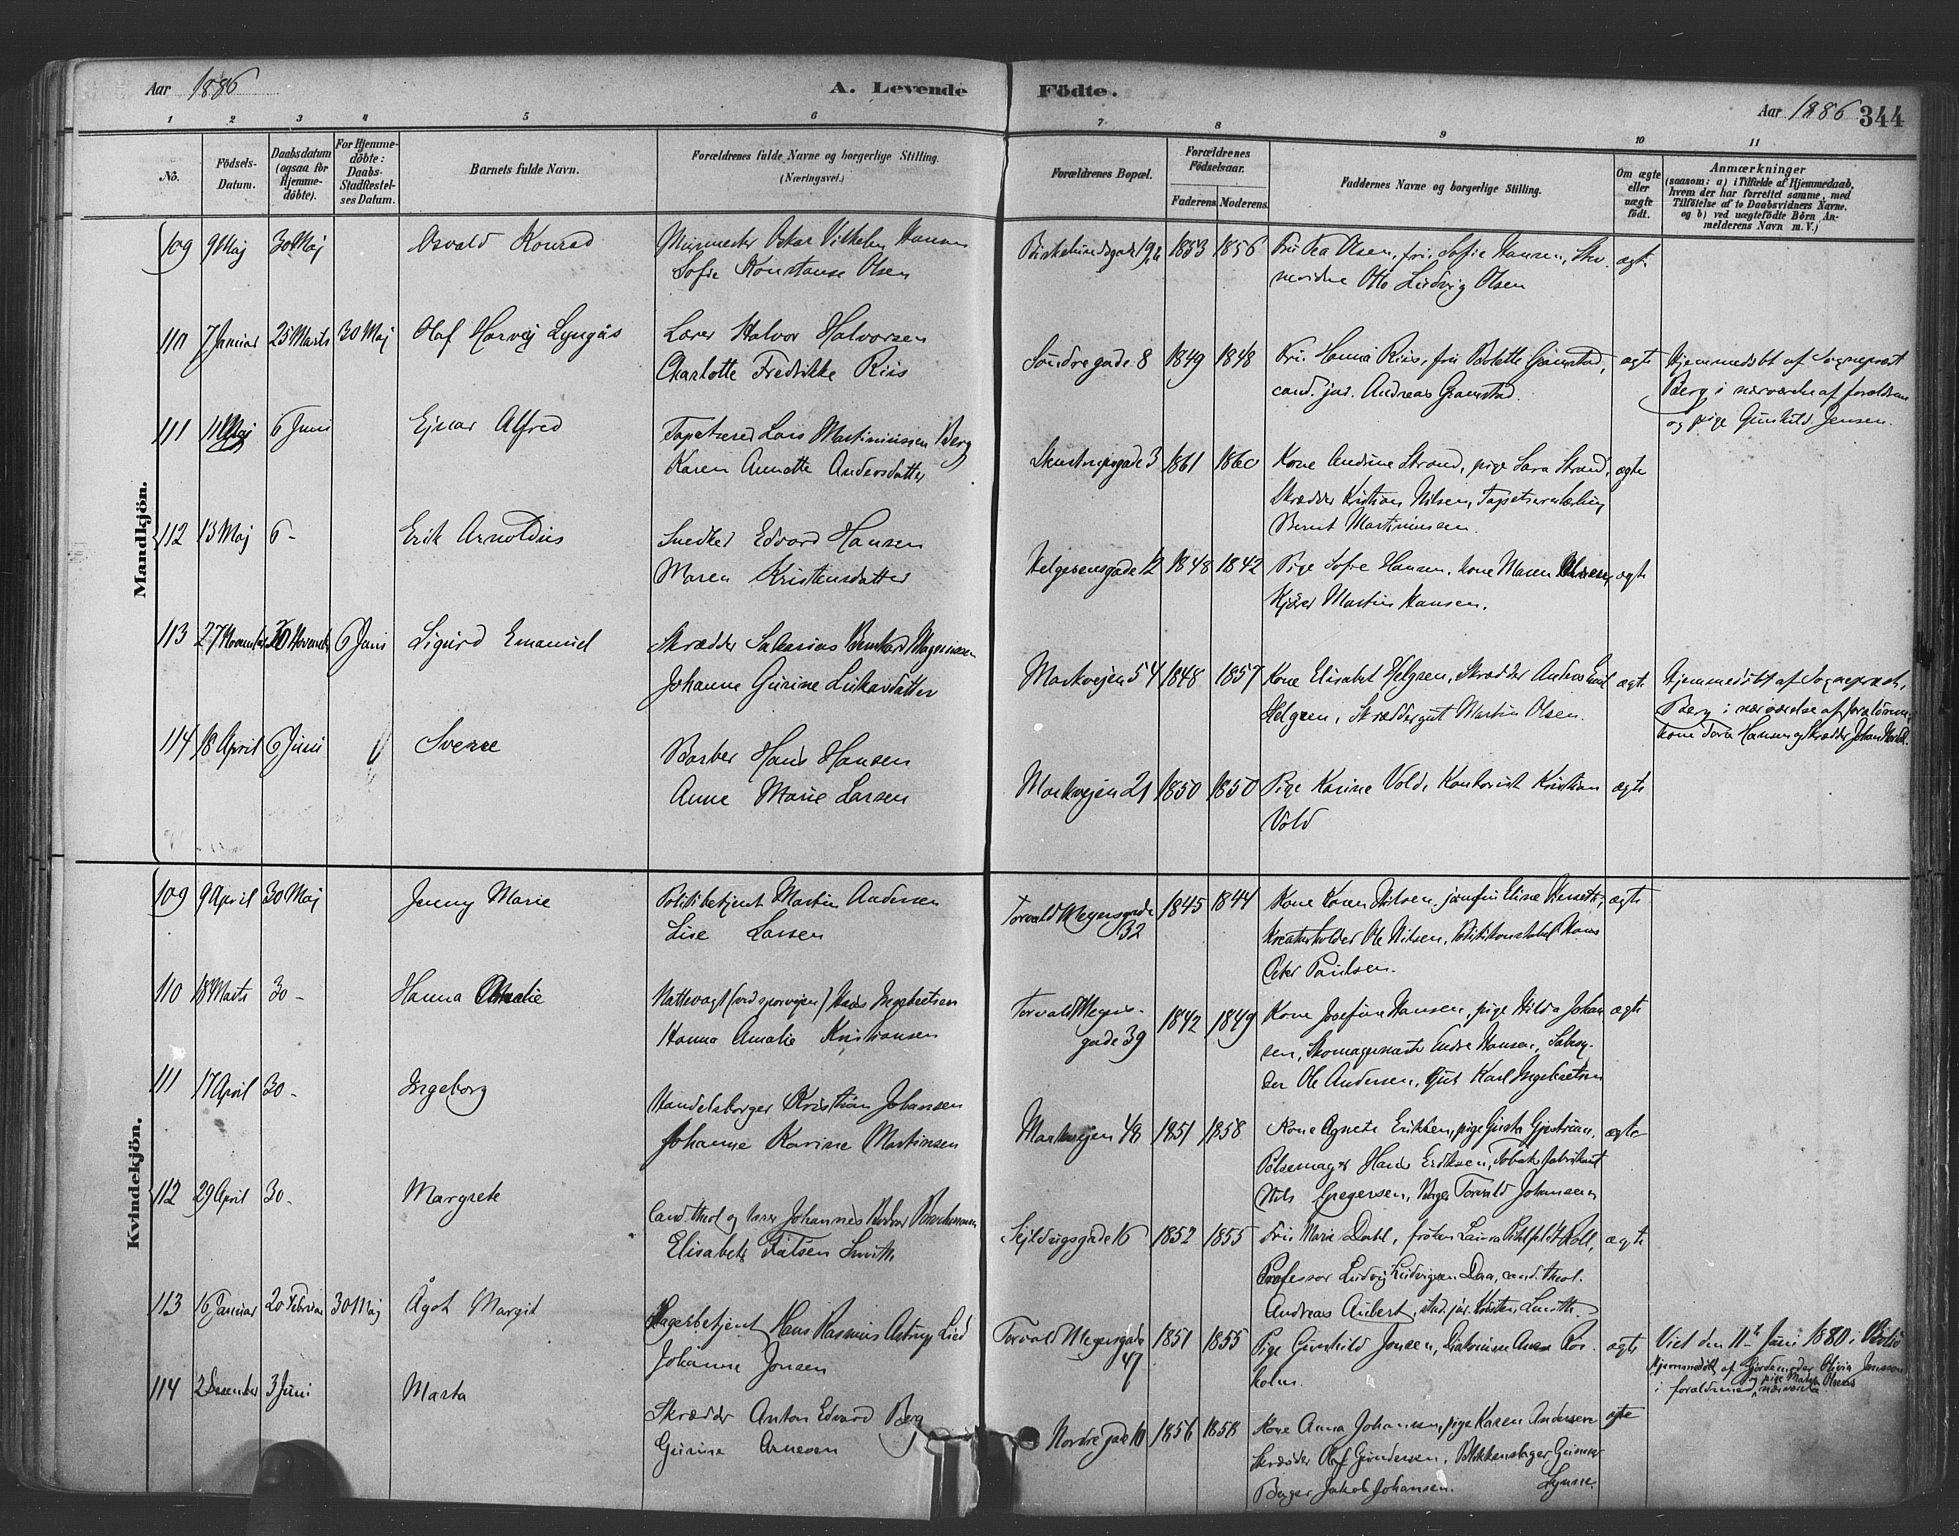 Aar 1886
A. Levende Födte.
Aar 1886 344
1 2 3 4 5 6 7 8 9 10 11
No.
Födsels-Datum.
Daabsdatum (ogsaa for Hjemme-döbte).
For Hjemme-döbte: Daabs-Stadfæstel-ses Datum.
Barnets fulde Navn.
Forældrenes fulde Navne og borgerlige Stilling.
(Næringsvei.)
Forældrenes Bopæl.
Forældrenes Födselsaar.
Faderens. Moderens.
Faddernes Navne og borgerlige Stilling.
Om ægte eller uægte födt.
Anmærkninger
(saasom: a) i Tilfælde af Hjemmedaab, hvem der har forrettet samme, med Tilföielse af to Daabsvidners Navne. og b) ved uægtefödte Börn An-melderens Navn m. V.)
Mandkjön.
109 9 Maj 30 Maj Osvald Konrad
Murmester Oskar Vilhelm Hansen
Sofie Konstanse Olsen
1853 1856 Fru Tea Olsen, fru Sofie Hansen,
Otto Ludvig Olsen
ægte
110 7 Januar 25 Marts 30 Maj Olaf Harvej Lyngås
Lærer Halvor Halvorsen
Charlotte Fredrikke Riis
Søndregade 8 1849 1848 Fru Hanna Riis, fru Bolette Gramstad,
cand. jur. Andreas Gramstad.
ægte
Hjemmedøbt af Sogneprest
Berg i nærværelse af forældrene
og pige Gunhild Jensen.
111 11 Maj 6 Juni Ejnar Alfred
Tapetserer Lars Martiniussen Berg
Karen Annette Andersdatter
Skenstrupsgade 3 1861 1860 Kone Andrine Strand, pige Sara Strand,
Skrædder Kristian Nilsen, Tapetserer
Bernt Martiniussen.
ægte
112 13 Maj 6 - Erik Arnoldus
Snedker Edvard Hansen
Maren Kristensdatter
Helgesensgade 12 1848 1842 Pige Sofie Hansen, kone Maren
Martin Hansen.
ægte
113 27 November 30 November 6 Juni Sigurd Emanuel
Skrædder Sakarias Bernhard Magnussen
Johanne Gurine Lukasdatter
Markvejen 54 1848 1857 Kone Elisabet Helgsen, Skrædder
Helgsen, Skræddergut Martin Olsen.
ægte
Hjemmedøbt af Sogneprest,
Berg i nærværelse af forældrene,
kone Hansen og Skrædder Johan
114 18 April 6 Juni Sverre
Barber Hans Hansen
Anne Marie Larsen
Markvejen 21 1850 1850 Pige Karine Vold, Kontorist Kristian
Vold
ægte
Kvindekjön.
109 9 April 30 Maj Jenny Marie
Politibetjent Martin Andersen
Lise Larsen
Torvald Meyersgade
32
1845 1844 Kone Karen Nilsen, jomfru Elise
Ole Nilsen, Politikonstabel Hans
Peter Paulsen.
ægte
110 18 Marts 30 - Hanna Amalie
Nattevagt (ved sporvejen) Hans Ingebretsen
Hanna Amalie Kristiansen
Torvald Meyers-
gade 39
1842 1849 Kone Josefine Hansen, pige Hilda Johan
sen, Skomagermester Hansen,
Ole Andersen, Gut Karl Ingebretsen
ægte
111 17 April 30 - Ingeborg
Handelsborger Kristian Johansen
Johanne Karine Martinsen
Markvejen 48 1851 1858 Kone Agnete Eriksen, pige
Pølsemager Hans Eriksen, Tobaksfabrikant
Nils Gregersen, Bager Torvald Johansen
ægte
112 29 April 30 - Margrete
Cand. theol og lærer Johannes
Elisabeth Falsen Smith
Sejldugsgade 16 1852 1855 Fru Marie Dahl, frøken Laura Koll,
Professor Ludvig Ludvigsen Daa, cand. theol.
Andreas Aubert, stud. jur.
ægte
113 16 Januar 20 Februar 30 Maj Ågot Margit
Lagerbetjent Hans Rasmus Astrup Lied
Johanne Jonsen
Torvald Meyersgade
47
1851 1855 Pige Gunhild Jonsen, Diakonisse Anna Ros
holm.
ægte
Viet den 11te Juni 1880 i
Hjemmedøbt af Gjordemoder Olivia Jenssen
og pige Olsens
i forældrenes nærværelse
114 2 Desember 3 Juni Marta
Skrædder Anton Edvard Berg
Gurine Arnesen
Nordregade 10 1856 1858 Kone Anna Johansen, pige Karen Andersen
Skrædder Olaf Gundersen, Blikkenslager Gunnar
Lynne.
Bager Jakob Johansen.
ægte